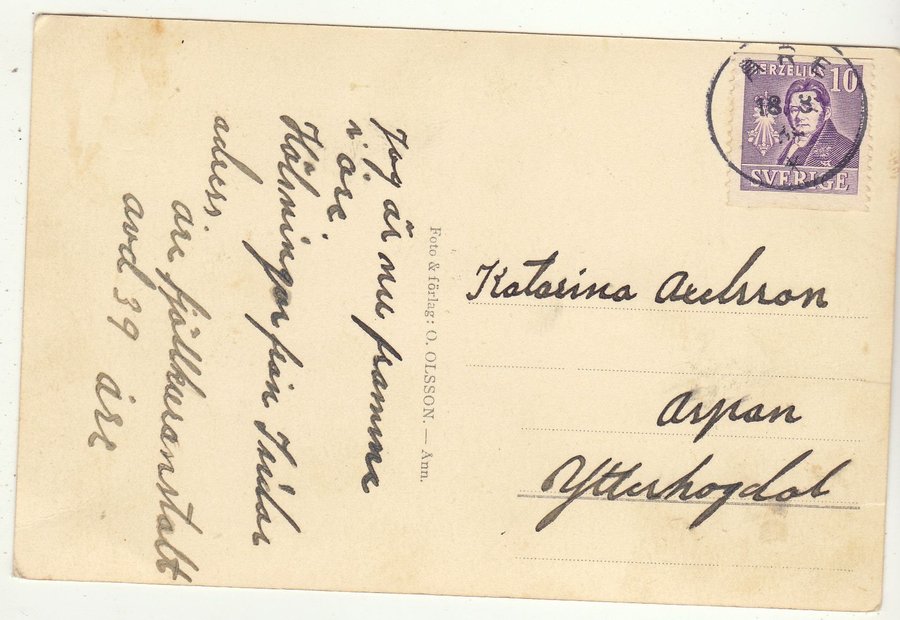 Jag är nu framme
i åre.
Hälsningar från
adress
åre fjällkuranstalt
avd 39 åre
Foto & förlag: O. OLSSON. — Ånn.
BERZELIUS 10
SVERIGE
ÅRE
18 3
Katarina Axelsson
Arpan
Ytterhogdal